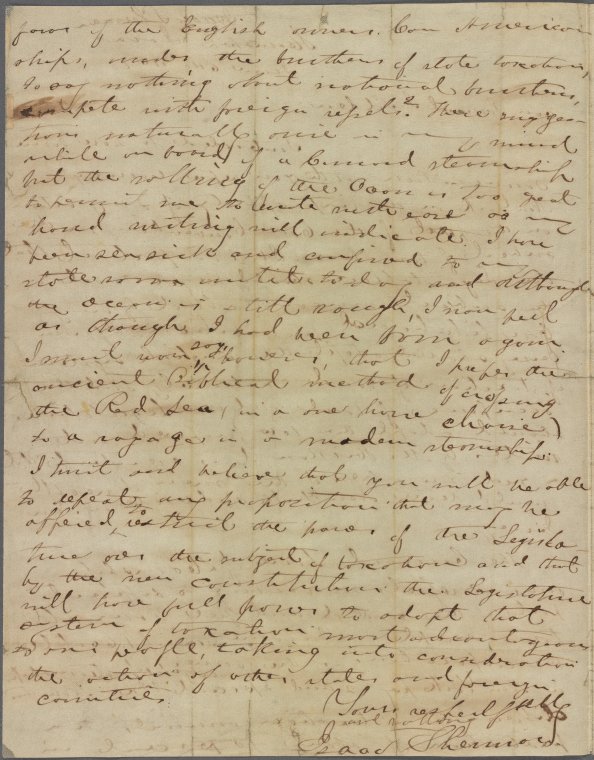 favor of the English owners. Can American
ships, under the burthens of state taxation,
to say nothing about national burthens,
compete with foreign vessels? These sugges-
tions naturally arise in my mind
while on board of a Cunard steamship
but the rolling of the Ocean is too great
to permit me to write with ease as my
hand writing will indicate. I have
been sea sick and confined to my
state room until to day and although
the Ocean is still rough, I now feel
as though I had been born again.
I must now say however, that I prefer the
ancient Biblical method of crossing
the Red Sea, in a one horse chaise,
to a voyage in a modern steamship.
I trust and believe that you will be able
to defeat any proposition that may be
offered, to restrict the power of the Legisla
ture over the subject of taxation and that
by the new constitution the Legislature
will have full power to adopt that
system of taxation most advantageous
to our people, taking into consideration
the action of other states and foreign
countries
Yours respectfully
and
Isaac Sherman